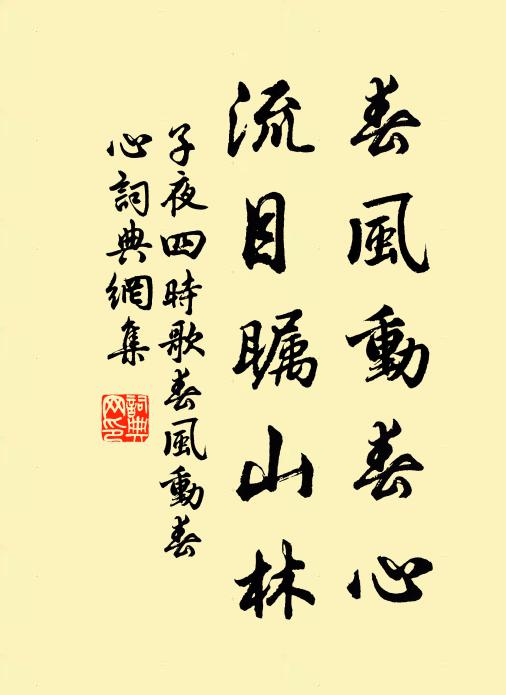 春風動春心
流目瞩山林
子夜四時歌春風動春
心詞典網集
詞典
网印